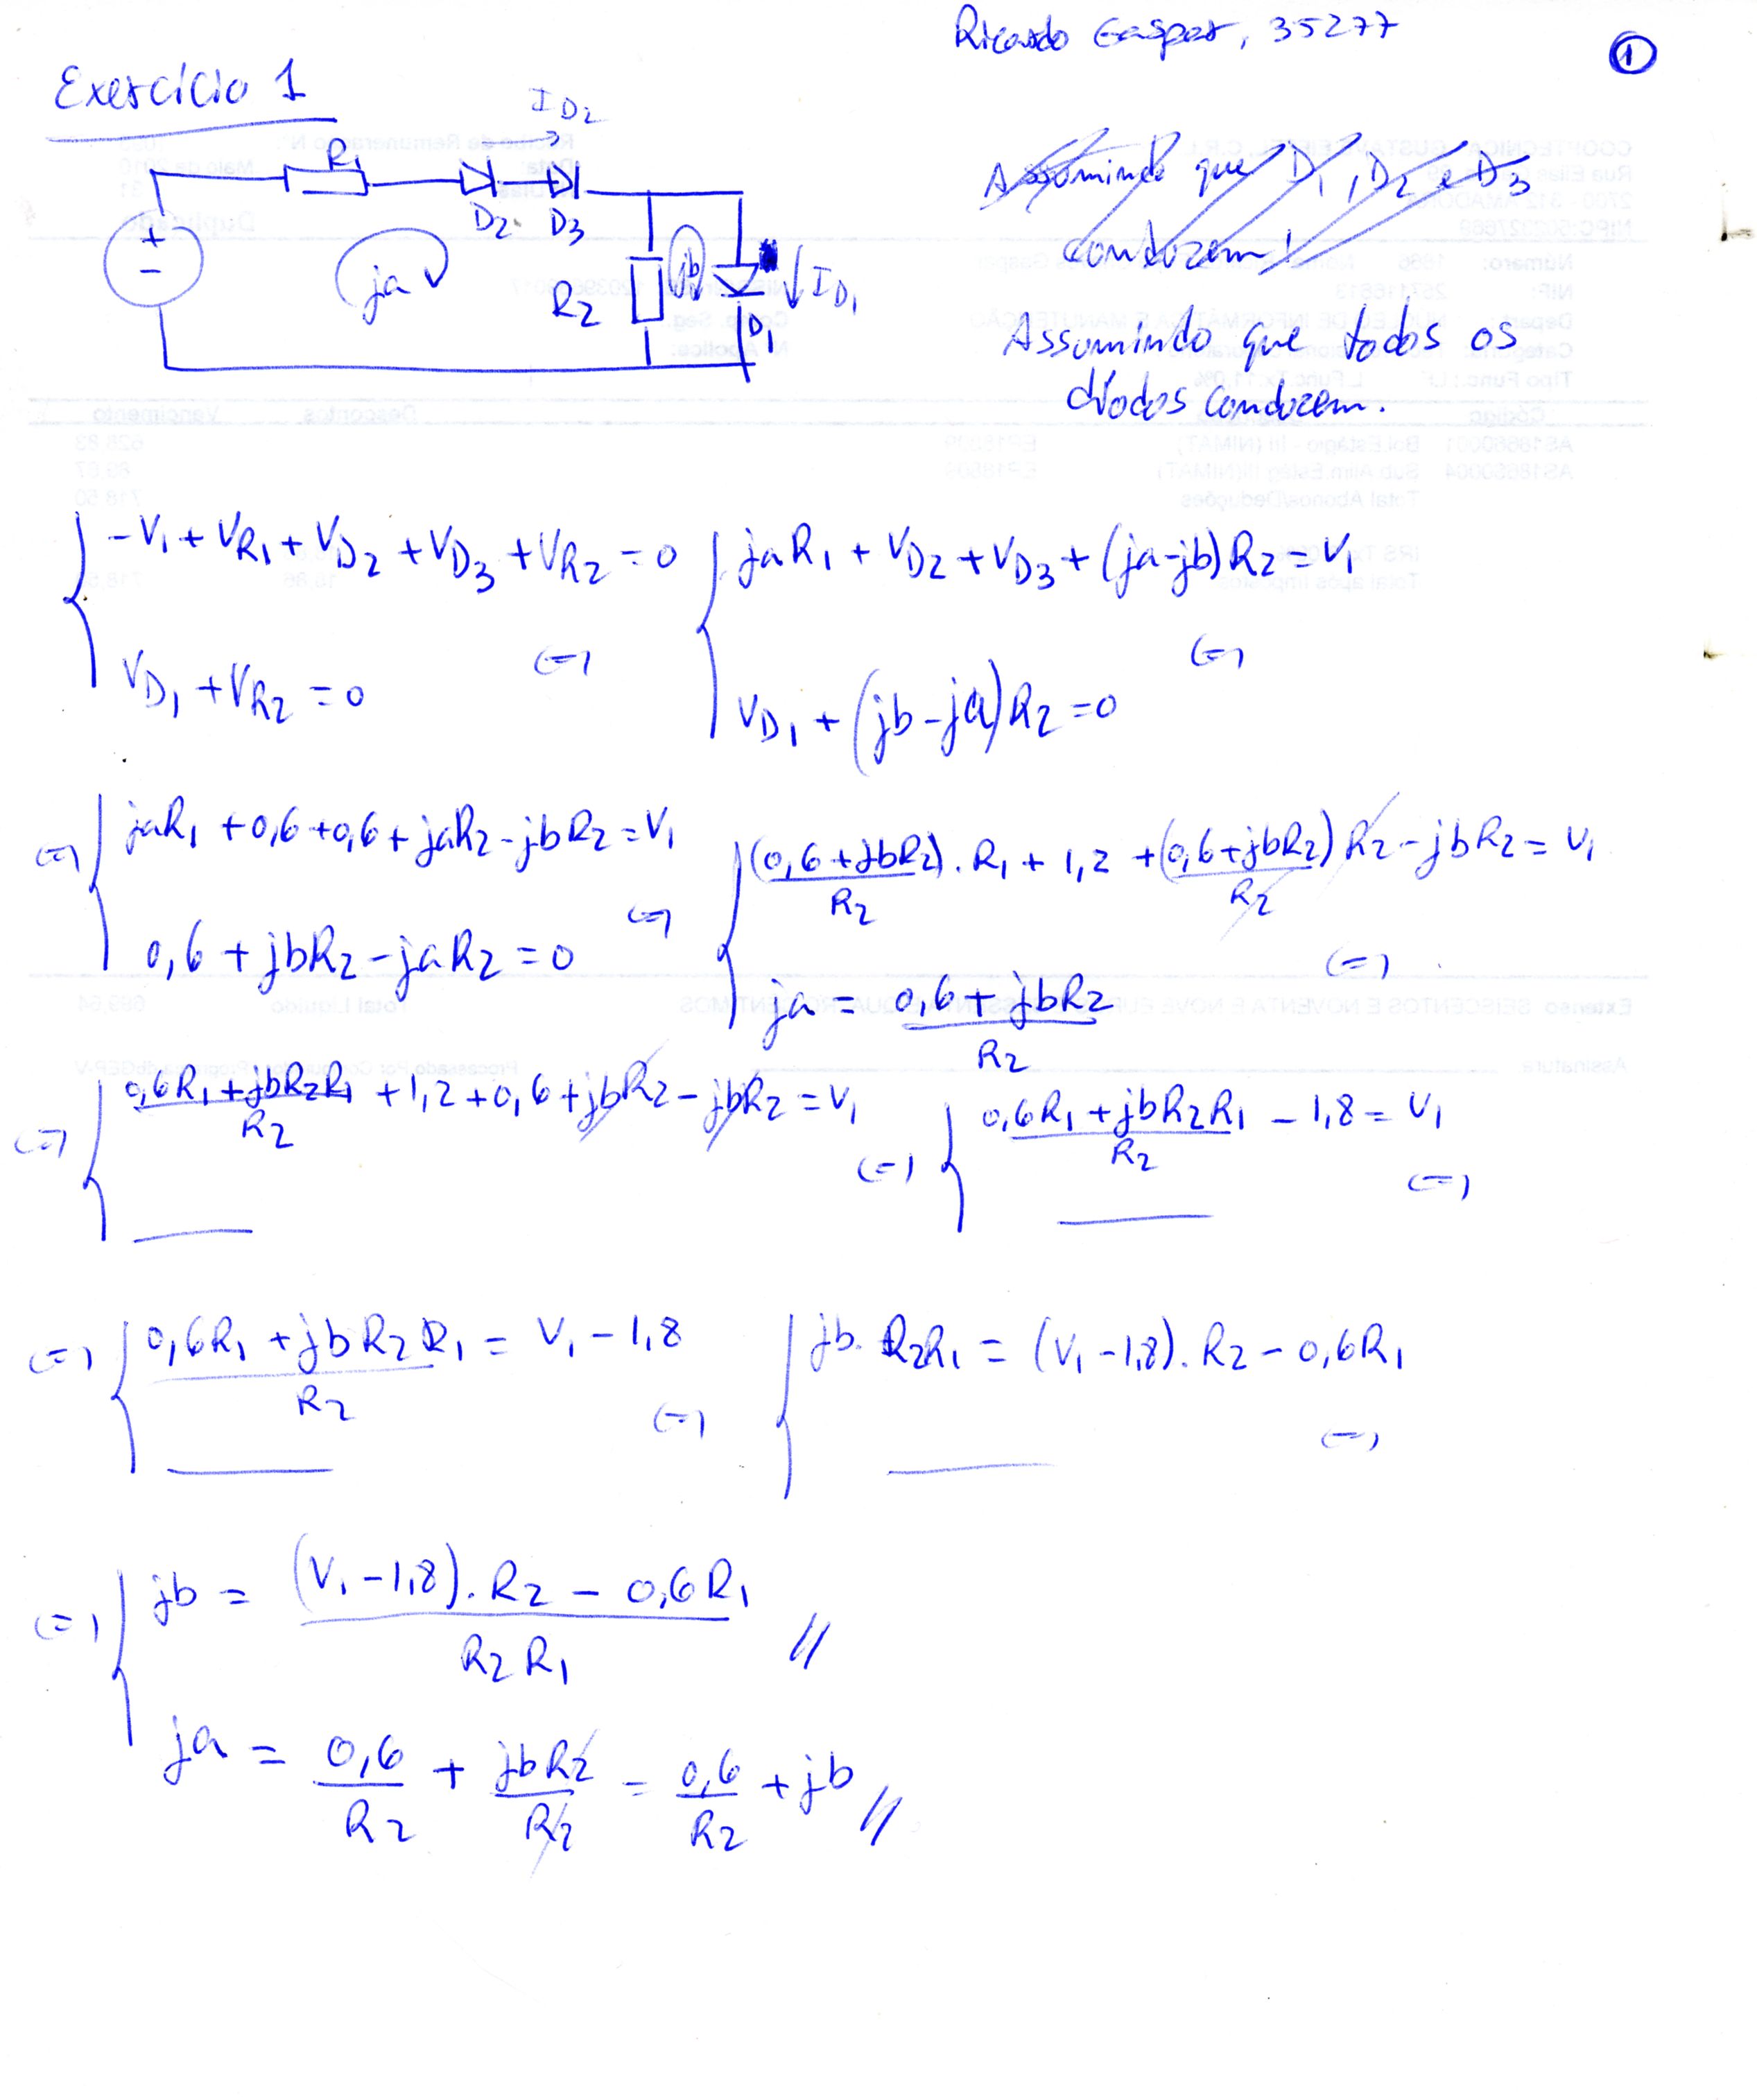 Ricardo Gaspar, 35277
1
Exercício 1
I D2
R1
D2 D3
+
-
ja
R2
jb
I D1
D1
Assumindo que D1, D2 e D3
conduzem!
Assumindo que todos os
díodos conduzem.
-V1 + VR1 + VD2 + VD3 + VR2 = 0
VD1 + VR2 = 0
(=)
jaR1 + VD2 + VD3 + (ja-jb)R2 = V1
VD1 + (jb-ja)R2 = 0
(=)
(=) jaR1 + 0,6 + 0,6 + jaR2 - jbR2 = V1
0,6 + jbR2 - jaR2 = 0
(=)
(0,6 + jbR2)/R2 . R1 + 1,2 + (0,6 + jbR2)/R2 R2 - jbR2 = V1
ja = (0,6 + jbR2)/R2
(=)
(=) (0,6R1 + jbR2R1)/R2 + 1,2 + 0,6 + jbR2 - jbR2 = V1
(=)
(0,6R1 + jbR2R1)/R2 - 1,8 = V1
(=)
(=) (0,6R1 + jbR2R1)/R2 = V1 - 1,8
(=)
jb. R2R1 = (V1 - 1,8). R2 - 0,6R1
(=)
(=) jb = ((V1 - 1,8). R2 - 0,6R1)/(R2R1) //
ja = 0,6/R2 + jbR2/R2 = 0,6/R2 + jb //